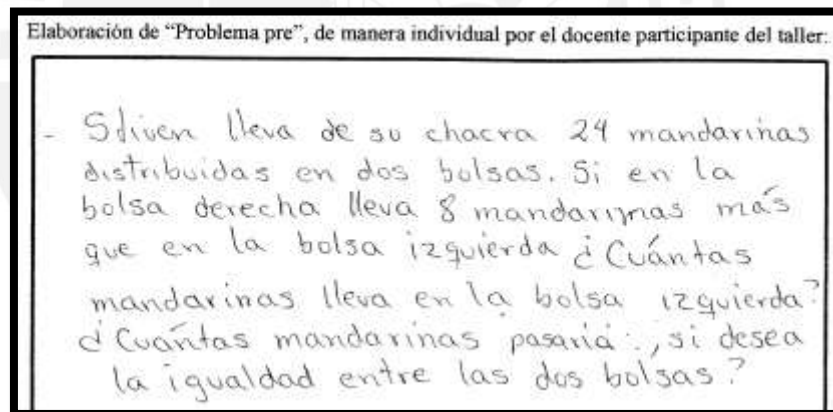 Elaboración de “Problema pre”, de manera individual por el docente participante del taller:
- Stiven lleva de su chacra 24 mandarinas
distribuidas en dos bolsas. Si en la
bolsa derecha lleva 8 mandarinas más
que en la bolsa izquierda ¿Cuántas
mandarinas lleva en la bolsa izquierda?
¿Cuántas mandarinas pasaría., si desea
la igualdad entre las dos bolsas?